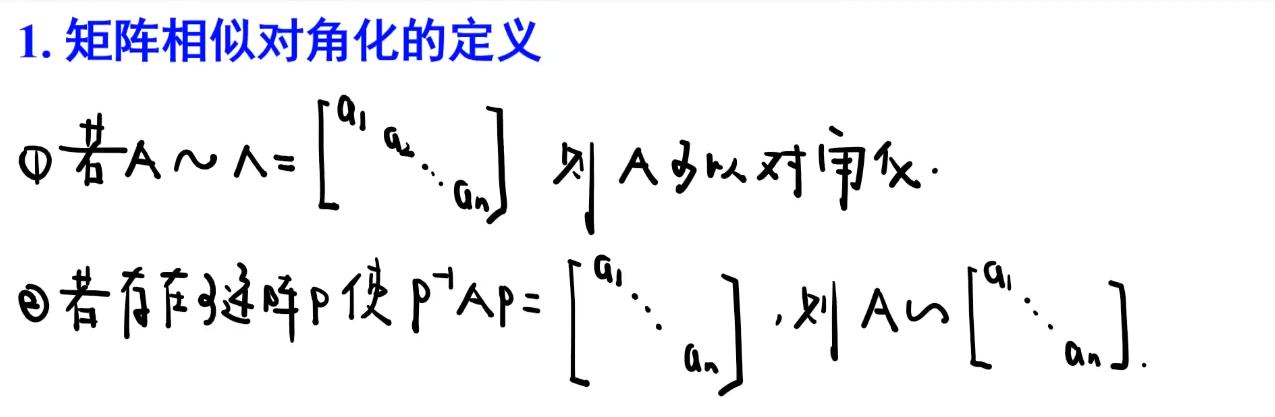 1. 矩阵相似对角化的定义
① 若 A ~ Λ = [a₁ a₂ ⋱ aₙ] 则 A 可以对角化.
② 若存在可逆阵 P 使 P⁻¹AP = [a₁ ⋱ aₙ], 则 A ∽ [a₁ ⋱ aₙ].